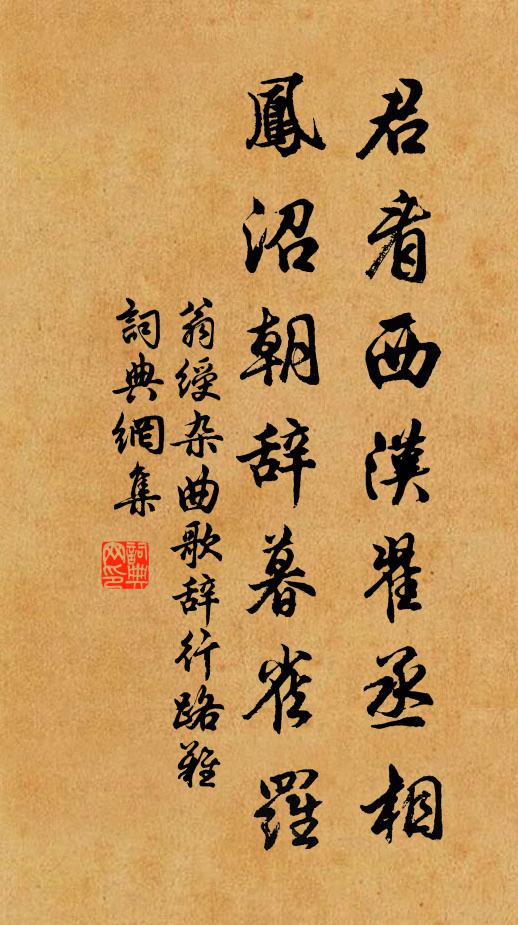 君看西漢翟丞相
鳳沼朝辞暮雀羅
翁綬杂曲歌辞行路難
詞典網集
詞典網印